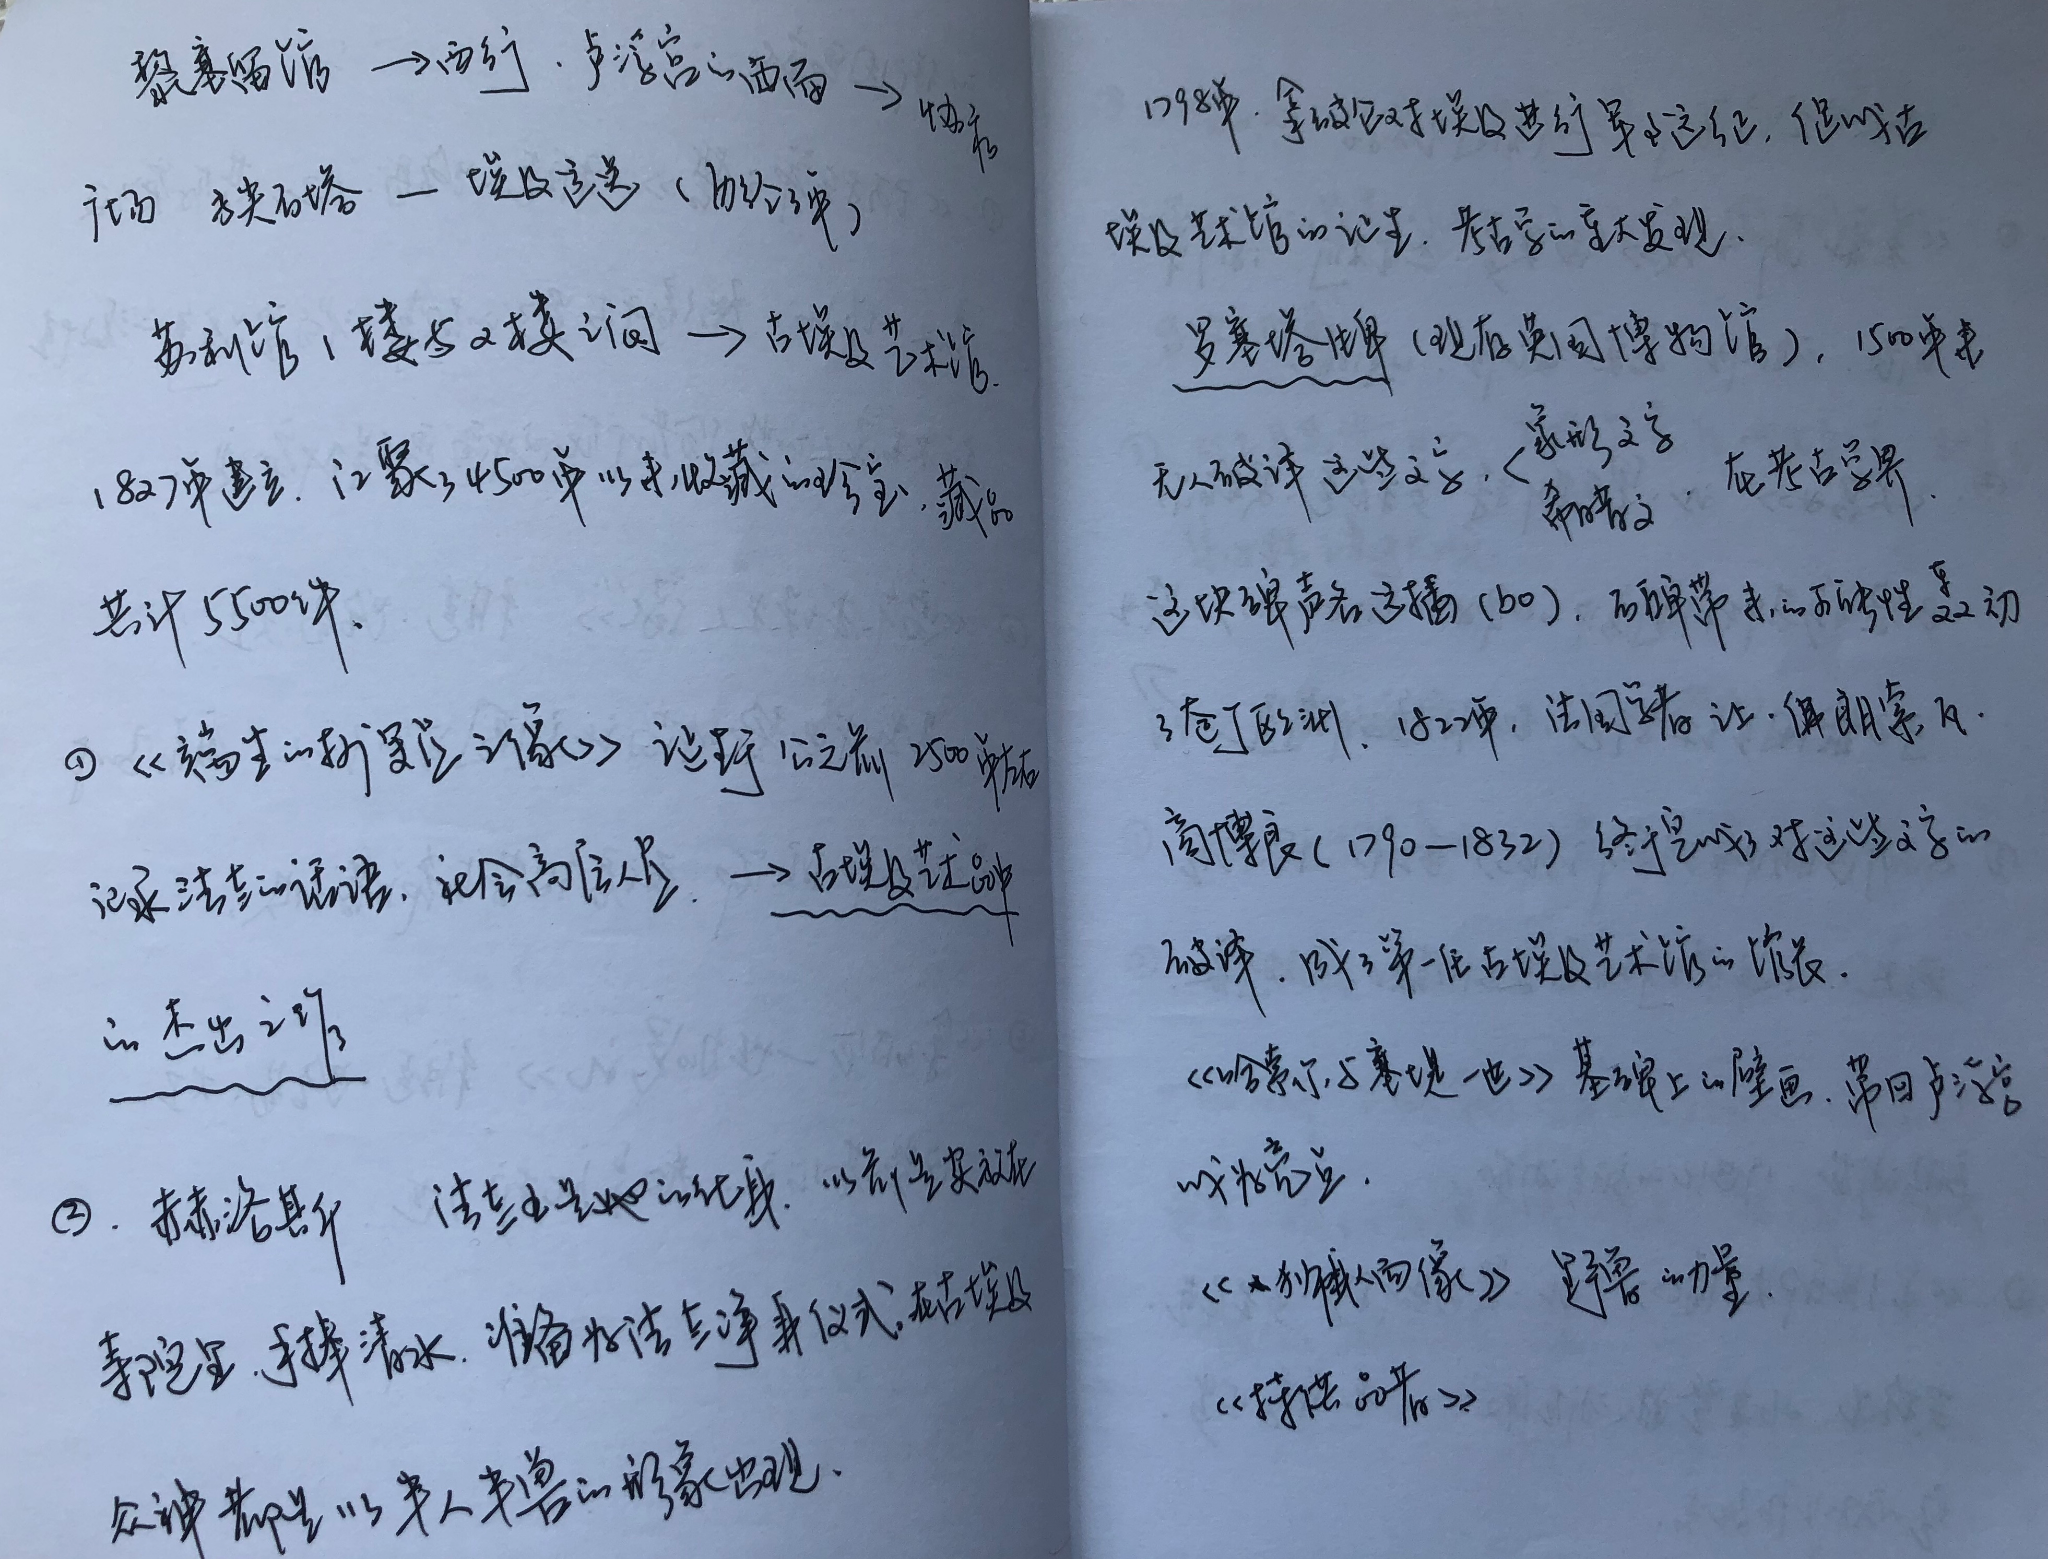 黎塞留馆 →西行.卢浮宫的西面→协和
广场 方尖石塔 — 埃及运送(历经3年)
苏利馆1楼与2楼之间→古埃及艺术馆.
1827年建立.汇聚了4500年以来收藏的珍宝,藏品
共计5500件.
① <<端坐的抄写员之像>> 诞于 公元前 2500年左右
记录法老的话语,社会高层人员. →古埃及艺术品中
的杰出之作
②. 赫洛斯 法老也是他的化身.以前是安放在
寺院里,手捧清水.准备为法老净身仪式,在古埃及
众神都是以半人半兽的形象出现.
1798年.拿破仑对埃及进行军事远征,促成古
埃及艺术馆的诞生.考古学的重大发现.
罗塞塔碑(现存英国博物馆),1500年来
无人破译这些文字,<象形文字
希腊文.在考古学界.
这块碑声名远播(bo),石碑带来的可能性轰动
了整个欧洲.1822年,法国学者让·佛朗索瓦·
商博良(1790—1832)终于完成了对这些文字的
破译.成了第一任古埃及艺术馆的馆长.
<<哈索尔与塞提一世>>墓碑上的壁画.带回卢浮宫
成为亮点.
<<狮身人面像>> 野兽的力量.
<<持供品者>>